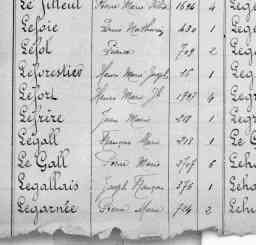 Le Filleul Pierre Marie 1694 4 Legé
Lefoie Louis Mathurin 430 1 Leg
Lefol Pierre 709 2 Leg
Leforestier Marie Joseph 1 Leg
Lefort Marie 4 Leg
Lefrère Jean Marie 218 1 Leg
Legall François Marie 218 1 Le G
Le Gall Pierre Marie 6 Lehu
Legallais Joseph François 376 1 Leho
Legarnée Pierre Marie 724 2 Lehu